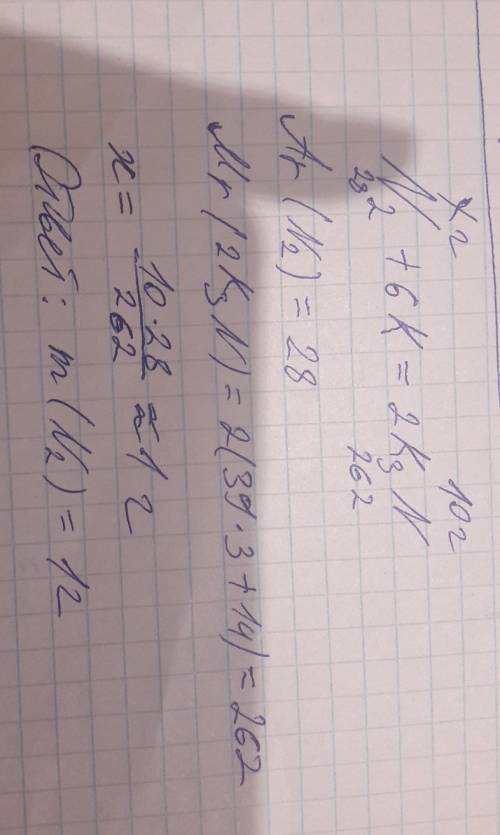 x г 10 г
N₂ + 6K = 2K₃N
28 262
Ar (N₂) = 28
Mr (2K₃N) = 2(39·3+14) = 262
x = 10·28/262 ≈ 1 г
Ответ: m (N₂) = 1г